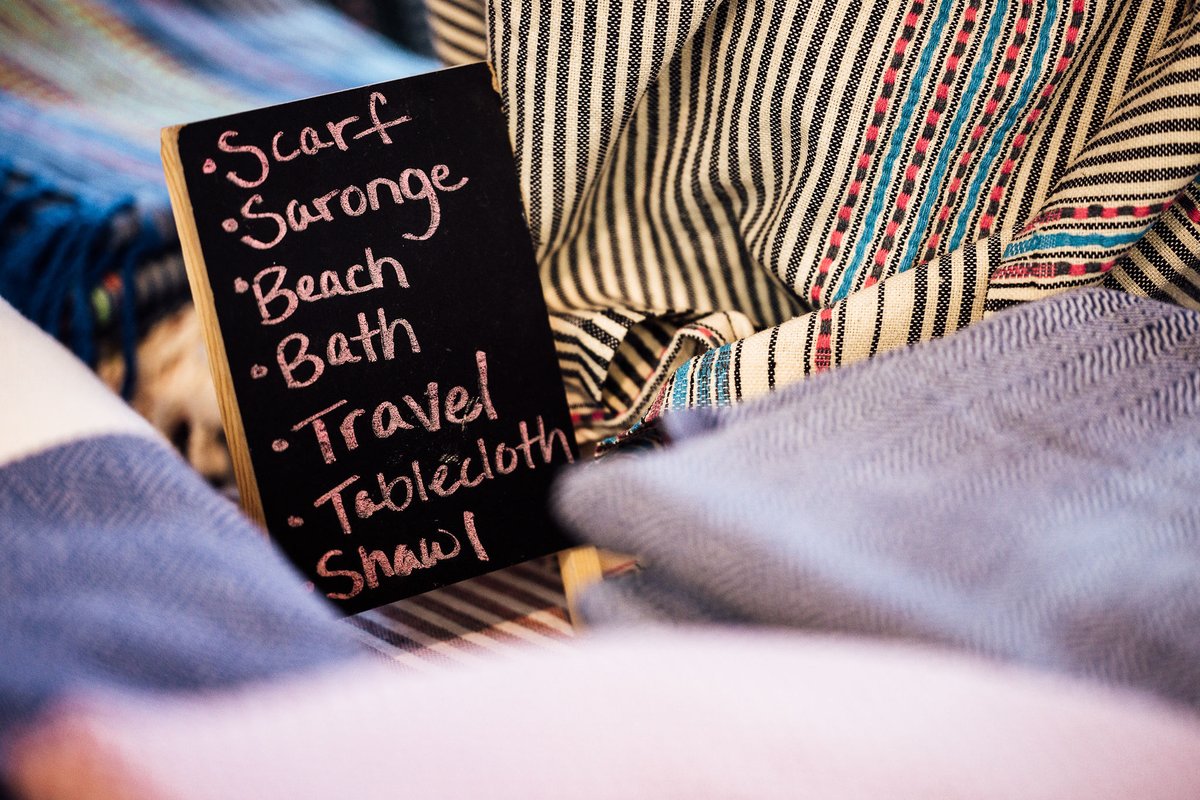 • Scarf
• Saronge
• Beach
• Bath
• Travel
• Tablecloth
• Shawl